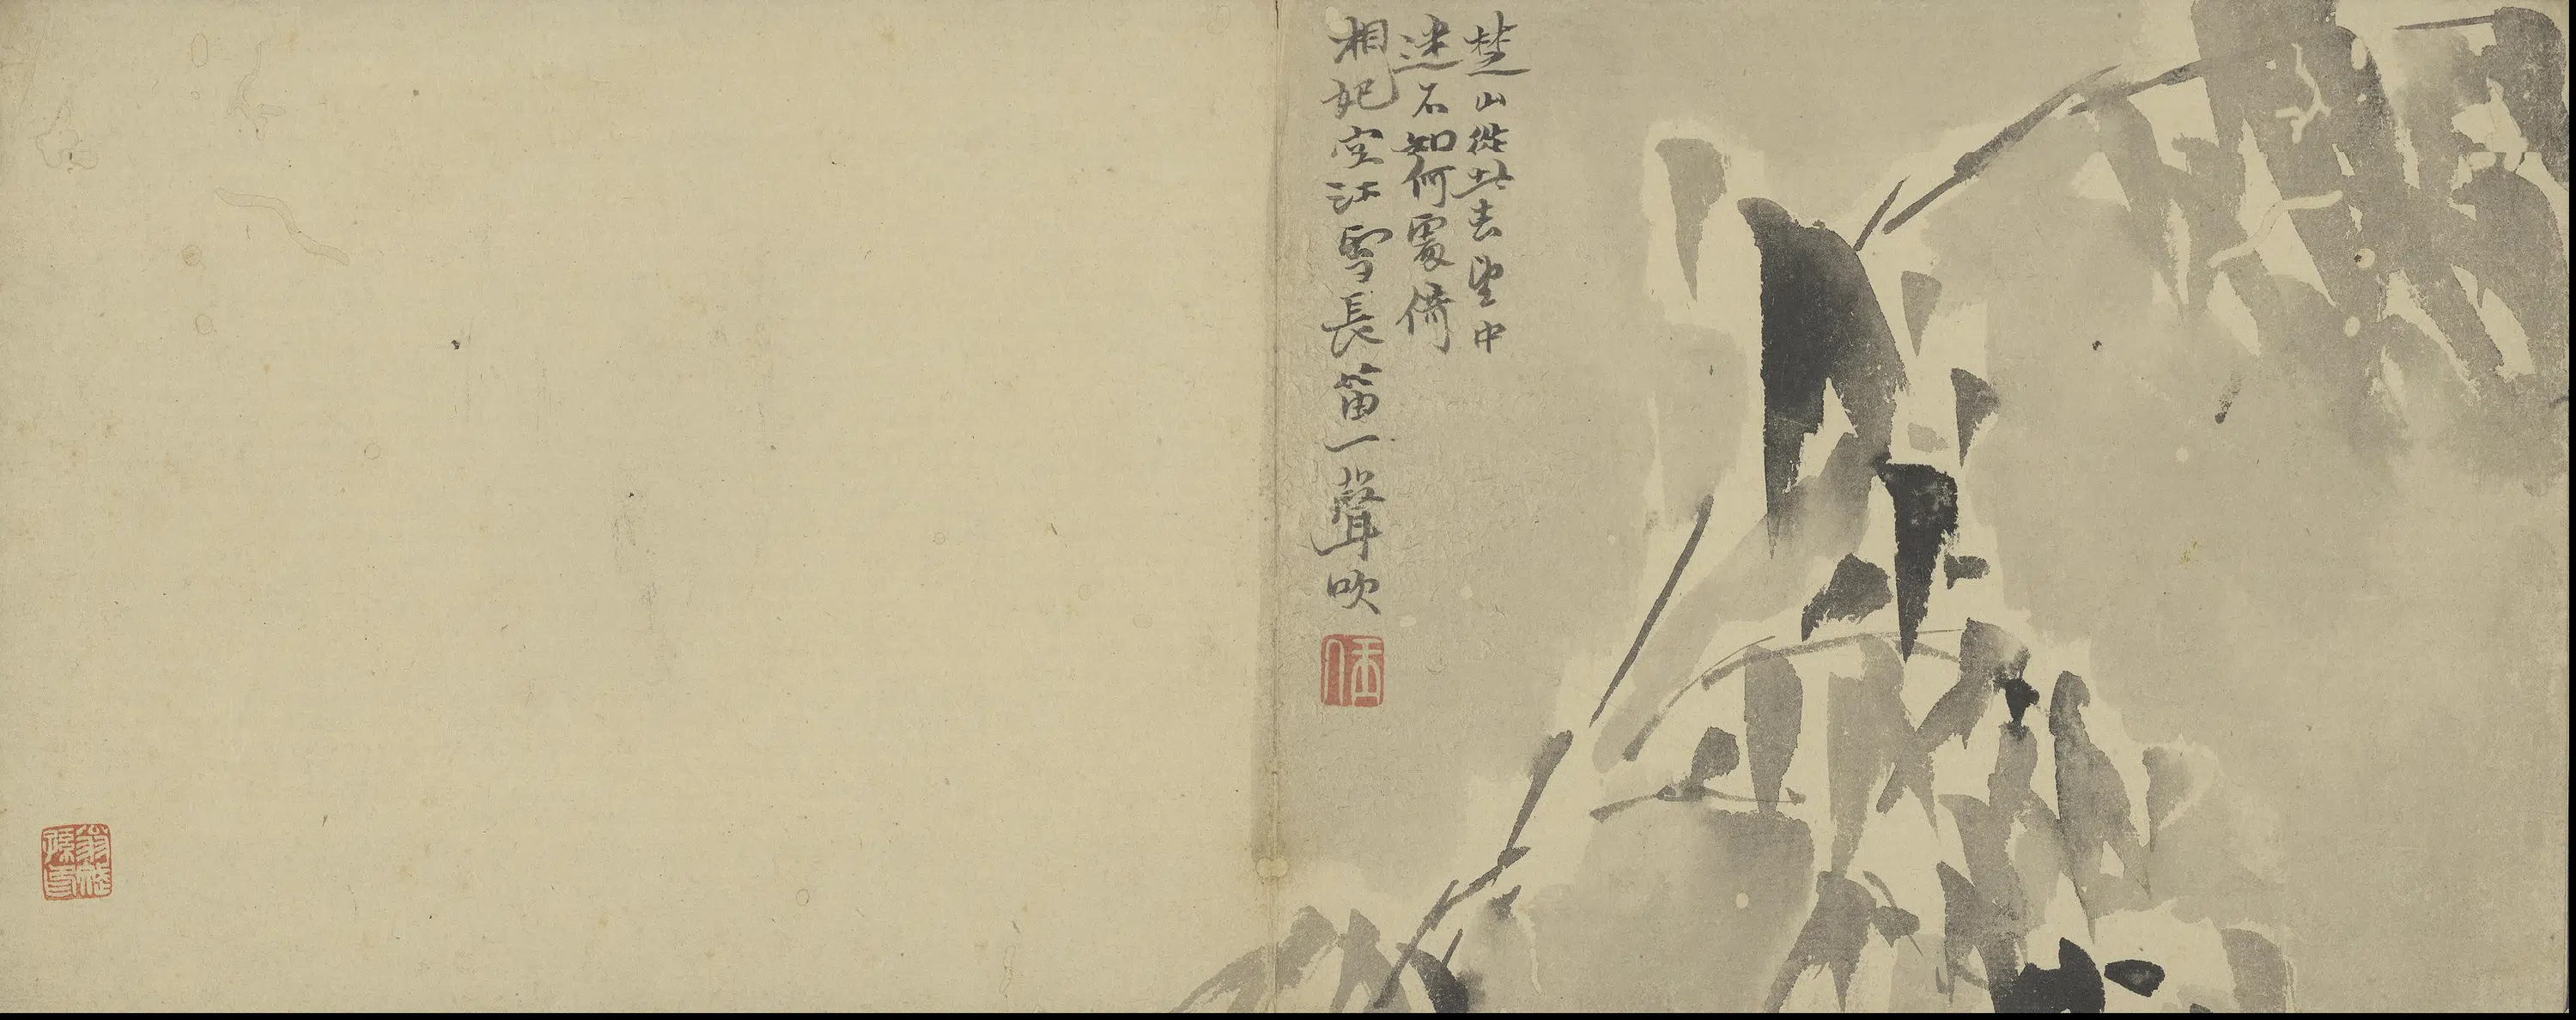 楚山從此去望中
迷不知何處倚
湘妃空江雪長笛一聲吹